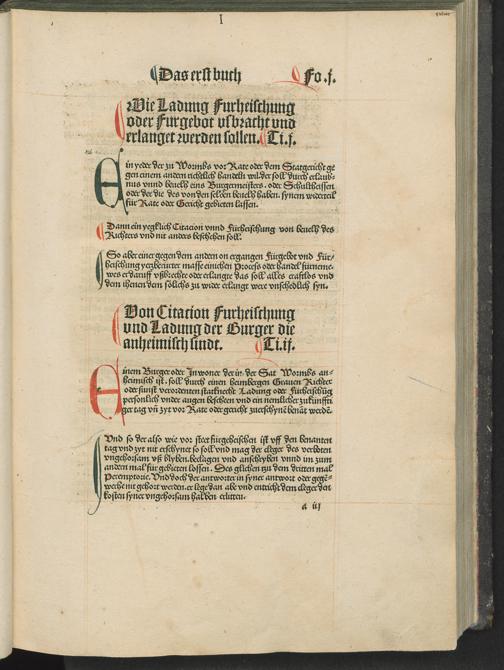 I
Das erst buch Fo. j.
Wie Ladung Furheischung
oder Furgebot vßbracht vnd
erlanget werden sollen. Ti. j.
Ein yeder der zu Wormbs vor Rate oder dem Statgericht ge
gen einem andern rechtlich handeln wil der soll durch erlaub-
nus vnnd beuelh eins Burgermeisters. oder Schultheissen
oder der die des von den selben beuelh haben. synem widerteil
für Rate oder Gericht gebieten lassen.
Dann ein yegklich Citacion vnnd Fürheischung von beuelh des
Richters vnd nit anders beschehen soll.
So aber einer gegen dem andern on ergangen Fürgebot vnd Für-
heischung yetzberürter masse einichen Process oder handel fürneme
wes er daruff vßbrechte oder erlangte das soll alles crafftloß vnd
dem ihenen dem söllichs zu wider erlangt were vnschedlich syn.
Von Citacion Furheischung
vnd Ladung der Burger die
anheimisch sindt. Ti. ij.
Einem Burger oder Inwoner der in der Stat Wormbs an-
heimisch ist. soll durch einen heimbergen Grauen Richter
oder sunst verordenten statknecht Ladung oder Fürheischūg
personlich vnder augen bescheen vnd ein nemlicher zukünfti
ger tag vñ zyt vor Rate oder gericht zuerschynē benāt werdē.
Vnd so der also wie vor steet fürgeheischen ist vff den benanten
tag vnd zyt nit erschynet so soll vnd mag der cleger des verboten
vngehorsam vß blyben. beclagen vnd anschryben vnnd im zum
andern mal für gebieten lossen. Des glichen zu dem dritten mal
Peremptorie. Vnd doch der antworter in syner antwort oder gegē-
werhe nit gehört werden. er lege dan abe vnd entricht dem cleger den
kosten syner vngehorsam halben erlitten.
a iij